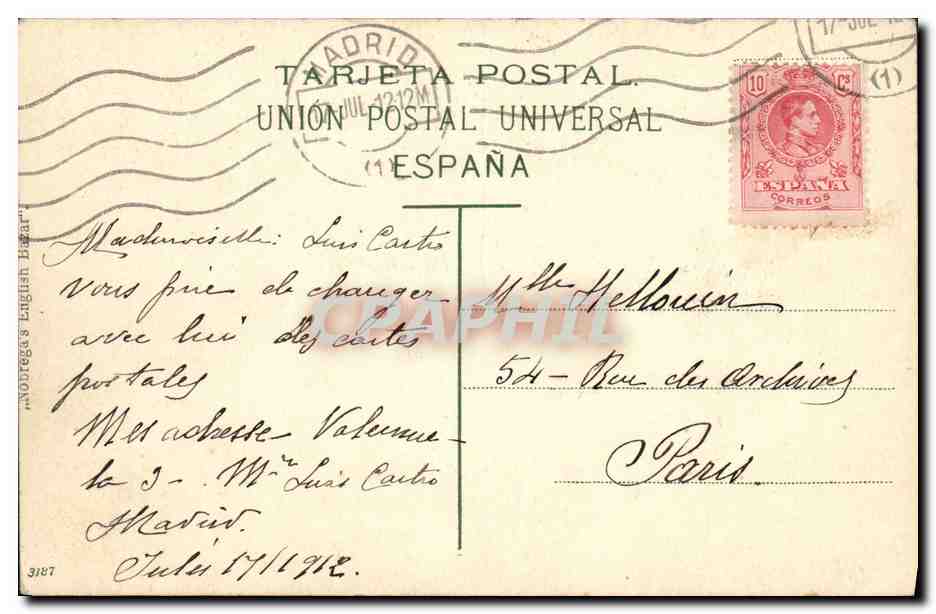 MADRID
17 JUL 12 12M
(1)
17-JUL 12
(1)
TARJETA POSTAL.
UNIÓN POSTAL UNIVERSAL
ESPAÑA
10 Cs
ESPAÑA
CORREOS
„Nobrega's English Bazar"
Mademoiselle: Luis Castro
vous prie de changer
avec lui des cartes
postales
Mes adresse
la 3 - Mr Luis Castro
Madrid.
17/1912.
3187
Mlle Hellouin
54 - Rue des Archives
Paris.
CPAPHIL